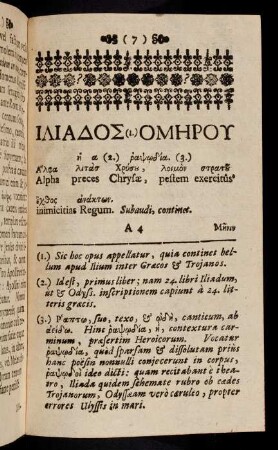 (7)
ΙΛΙΑΔΟΣ(1.)ΟΜΗΡΟΥ
ἡ α (2.) ῥαψωδία. (3.)
Αλφα λιτὰς Χρύση, λοιμὸν στρατοῦ
Alpha preces Chrysæ, pestem exercitûs
ἔχθος ἀνάκτων.
inimicitias Regum. Subaudi, continet.
A 4 Μῆνιν
(1.) Sic hoc opus appellatur, quia continet bel-
lum apud Ilium inter Græcos & Trojanos.
(2.) Id est, primus liber; nam 24. libri Iliadum,
ut & Odyss. inscriptionem capiunt à 24. lit-
teris græcis.
(3.) Ῥάπτω, suo, texo, & ᾠδὴ, canticum, ab
ἀείδω. Hinc ῥαψωδία, ἡ, contextura car-
minum, præsertim Heroicorum. Vocatur
ῥαψωδία, quod sparsam & dissolutam priùs
hanc poësin nonnulli conjecerunt in corpus,
ῥαψωδοὶ ideo dicti: quam recitabant è thea-
tro, Iliada quidem schemate rubro ob cædes
Trojanorum, Odysseam verò cæruleo, propter
errores Ulyssis in mari.